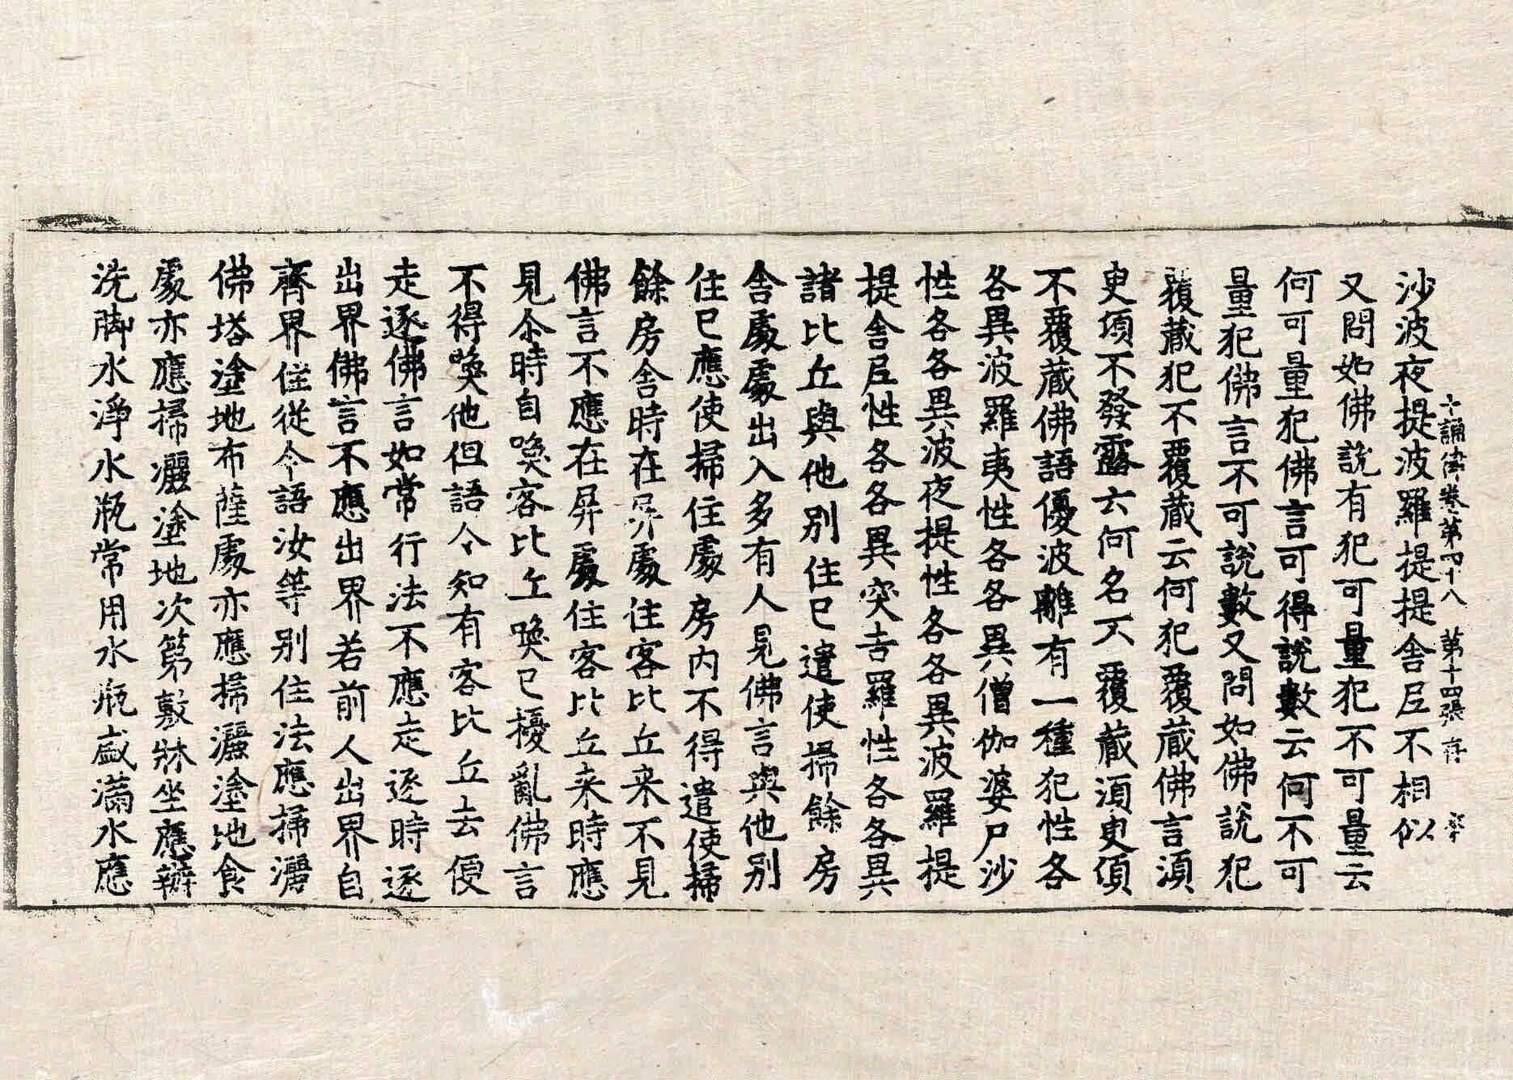 十誦律卷第四十八 第十四張 存
沙波夜提波羅提提舍尼不相似
又問如佛說有犯可量犯不可量云
何可量犯佛言可得說數云何不可
量犯佛言不可說數又問如佛說犯
覆藏犯不覆藏云何犯覆藏佛言湏
臾頃不發露云何名不覆藏湏臾頃
不覆藏佛語優波離有一種犯性各
各異波羅夷性各各異僧伽婆尸沙
性各各異波夜提性各各異波羅提
提舍尼性各各異突吉羅性各各異
諸比丘與他別住已遣使掃餘房
舍處處出入多有人見佛言與他別
住已應使掃住處房內不得遣使掃
餘房舍時在屏處住客比丘来不見
佛言不應在屏處住客比丘来時應
見余時自喚客比丘喚已擾亂佛言
不得喚他但語令知有客比丘去便
走逐佛言如常行法不應走逐時逐
出界佛言不應出界若前人出界自
齊界住從今語汝等別住法應掃灑
佛塔塗地布薩處亦應掃灑塗地食
處亦應掃灑塗地次第敷牀坐應辦
洗脚水淨水瓶常用水瓶盛滿水應